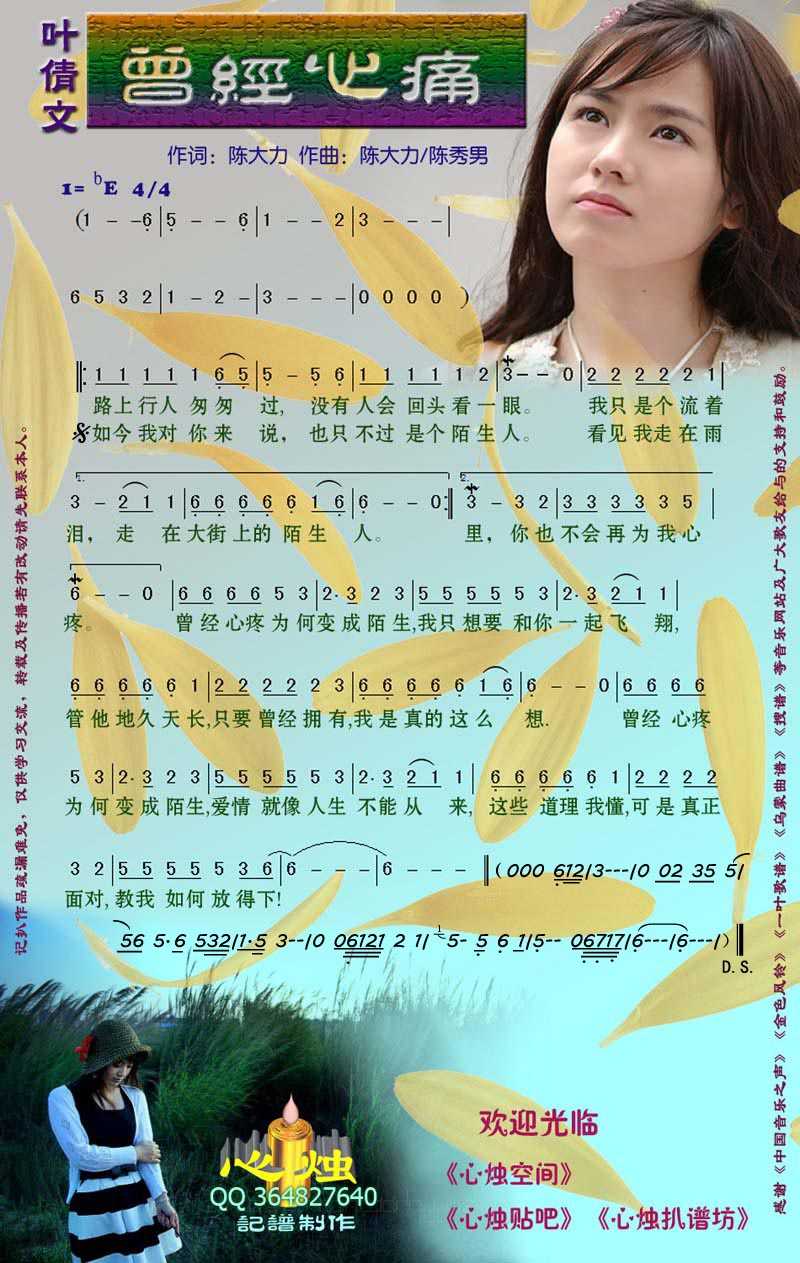 叶倩文
曾經心痛
作词：陈大力 作曲：陈大力/陈秀男
1= bE 4/4
(1 - -6|5 - - 6|1 - - 2|3 - - -|
6 5 3 2|1 - 2 -|3 - - -|0 0 0 0 )
‖: 1 1 1 1 1 6 5|5 - 5 6|1 1 1 1 1 1 2|3 - - 0|2 2 2 2 2 1|
路上行人 匆匆 过, 没有人会 回头看一眼。 我只是个流着
如今我对 你来 说，也只不过 是个陌生人。 看见我走在雨
1. 2.
3 - 2 1 1|6 6 6 6 6 1 6|6 - - 0:‖3 - 3 2|3 3 3 3 3 5|
泪，走 在大街上的陌生 人。 里，你也不会再为我心
6 - - 0 |6 6 6 6 5 3|2· 3 2 3|5 5 5 5 5 3|2· 3 2 1 1|
疼。 曾经心疼为何变成陌生,我只想要 和你一起飞 翔,
6 6 6 6 6 1|2 2 2 2 2 3|6 6 6 6 6 1 6|6 - - 0|6 6 6 6
管他地久天长,只要曾经拥有,我是真的这么 想. 曾经 心疼
5 3|2· 3 2 3|5 5 5 5 5 3|2· 3 2 1 1|6 6 6 6 6 1|2 2 2 2
为何变成陌生,爱情 就像人生 不能从 来, 这些 道理我懂,可是真正
3 2|5 5 5 5 5 3 6|6 - - -|6 - - - ‖(000 612|3---|0 02 35 5|
面对,教我 如何放得下!
56 5·6 532|1·5 3--|0 06121 2 1| 1 5- 5 6 1|5-- 06717|6---|6---|)‖
D.S.
记扒作品疏漏难免，仅供学习交流，转载及传播若有改动请先联系本人。
感谢《中国音乐之声》《金色风铃》《一叶歌谱》《乌蒙曲谱》《搜谱》等音乐网站及广大歌友给与的支持和鼓励。
心烛
QQ 364827640
記譜制作
欢迎光临
《心烛空间》
《心烛贴吧》《心烛扒谱坊》